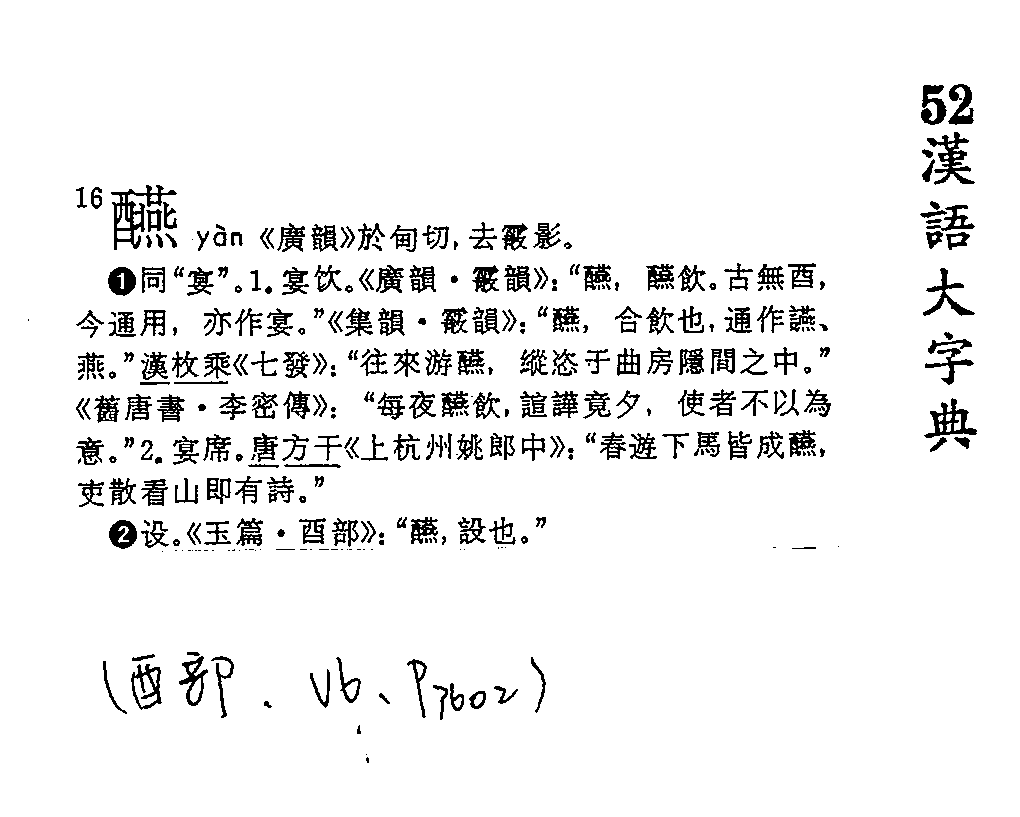 52漢語大字典
16 醼 yàn《廣韻》於甸切，去霰影。
❶同“宴”。1.宴饮。《廣韻·霰韻》：“醼，醼飲。古無酉，
今通用，亦作宴。”《集韻·霰韻》：“醼，合飲也，通作讌、
燕。”漢枚乘《七發》：“往來游醼，縱恣于曲房隱間之中。”
《舊唐書·李密傳》：“每夜醼飲，諠譁竟夕，使者不以為
意。”2.宴席。唐方干《上杭州姚郎中》：“春遊下馬皆成醼，
吏散看山即有詩。”
❷设。《玉篇·酉部》：“醼，設也。”
(酉部、V6、P3602)